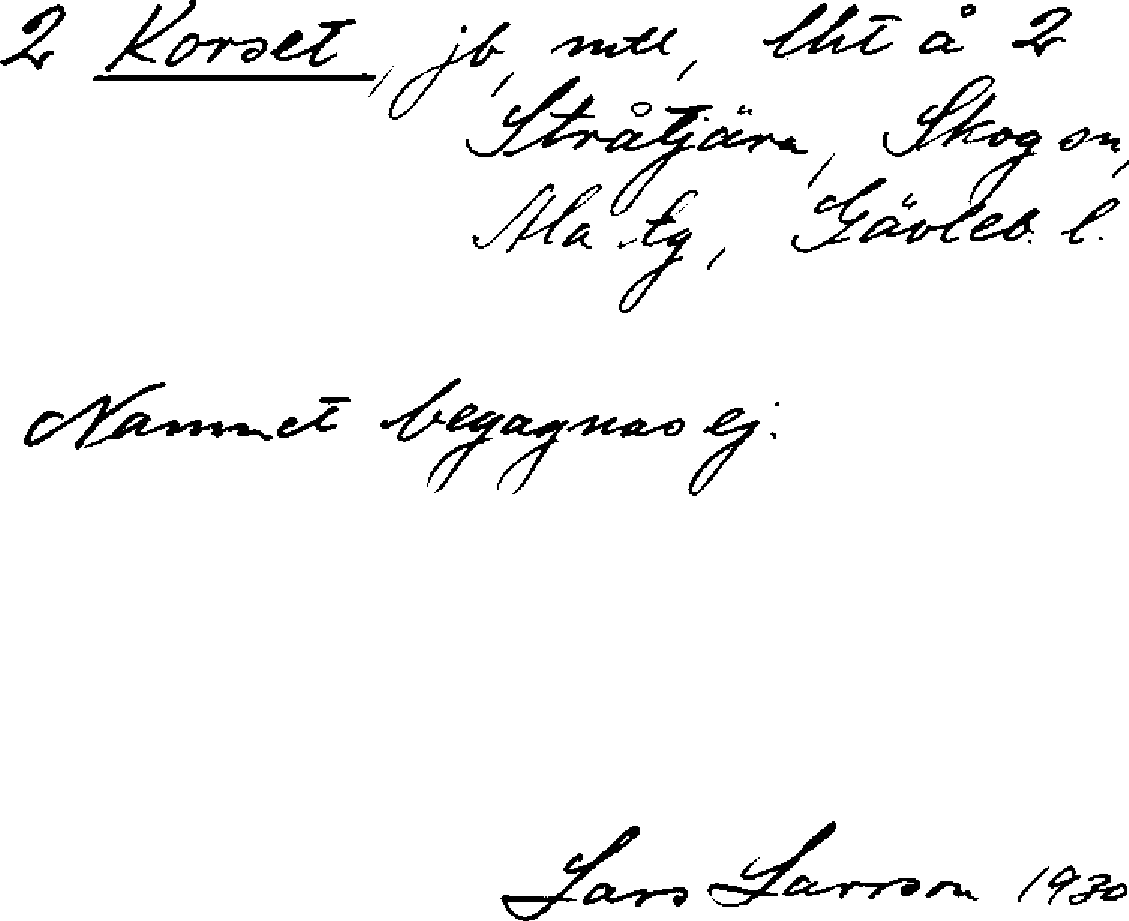 2 Korset, jb, mtl, lht å 2
Stråtjära, Skog sn,
Ala tg, Gävleb. l.
Namnet begagnas ej.
Lars Larsson 1930